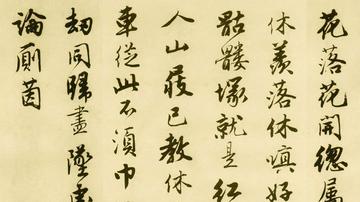 花落花開總属
休羨落休嗔好
骷髏塚就是红
人山屐已教休
車從此不須巾
劫同歸盡墜
論廁茵